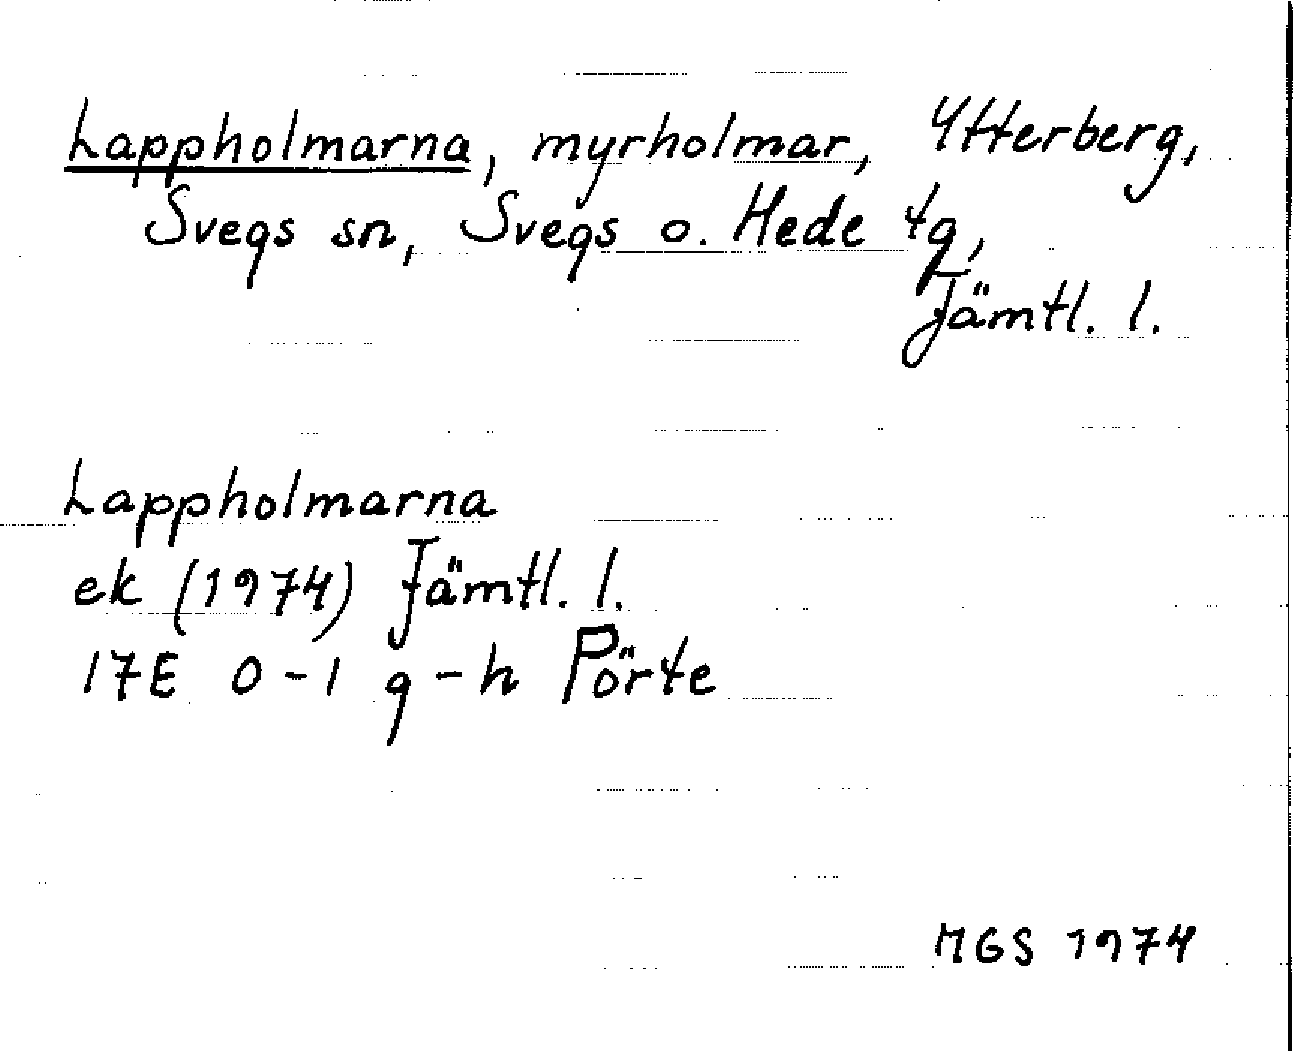 Lappholmarna, myrholmar, Ytterberg,
Svegs sn, Svegs o. Hede tg,
Jämtl. l.
Lappholmarna
ek (1974) Jämtl. l.
17E 0-1 g-h Pörte
MGS 1974